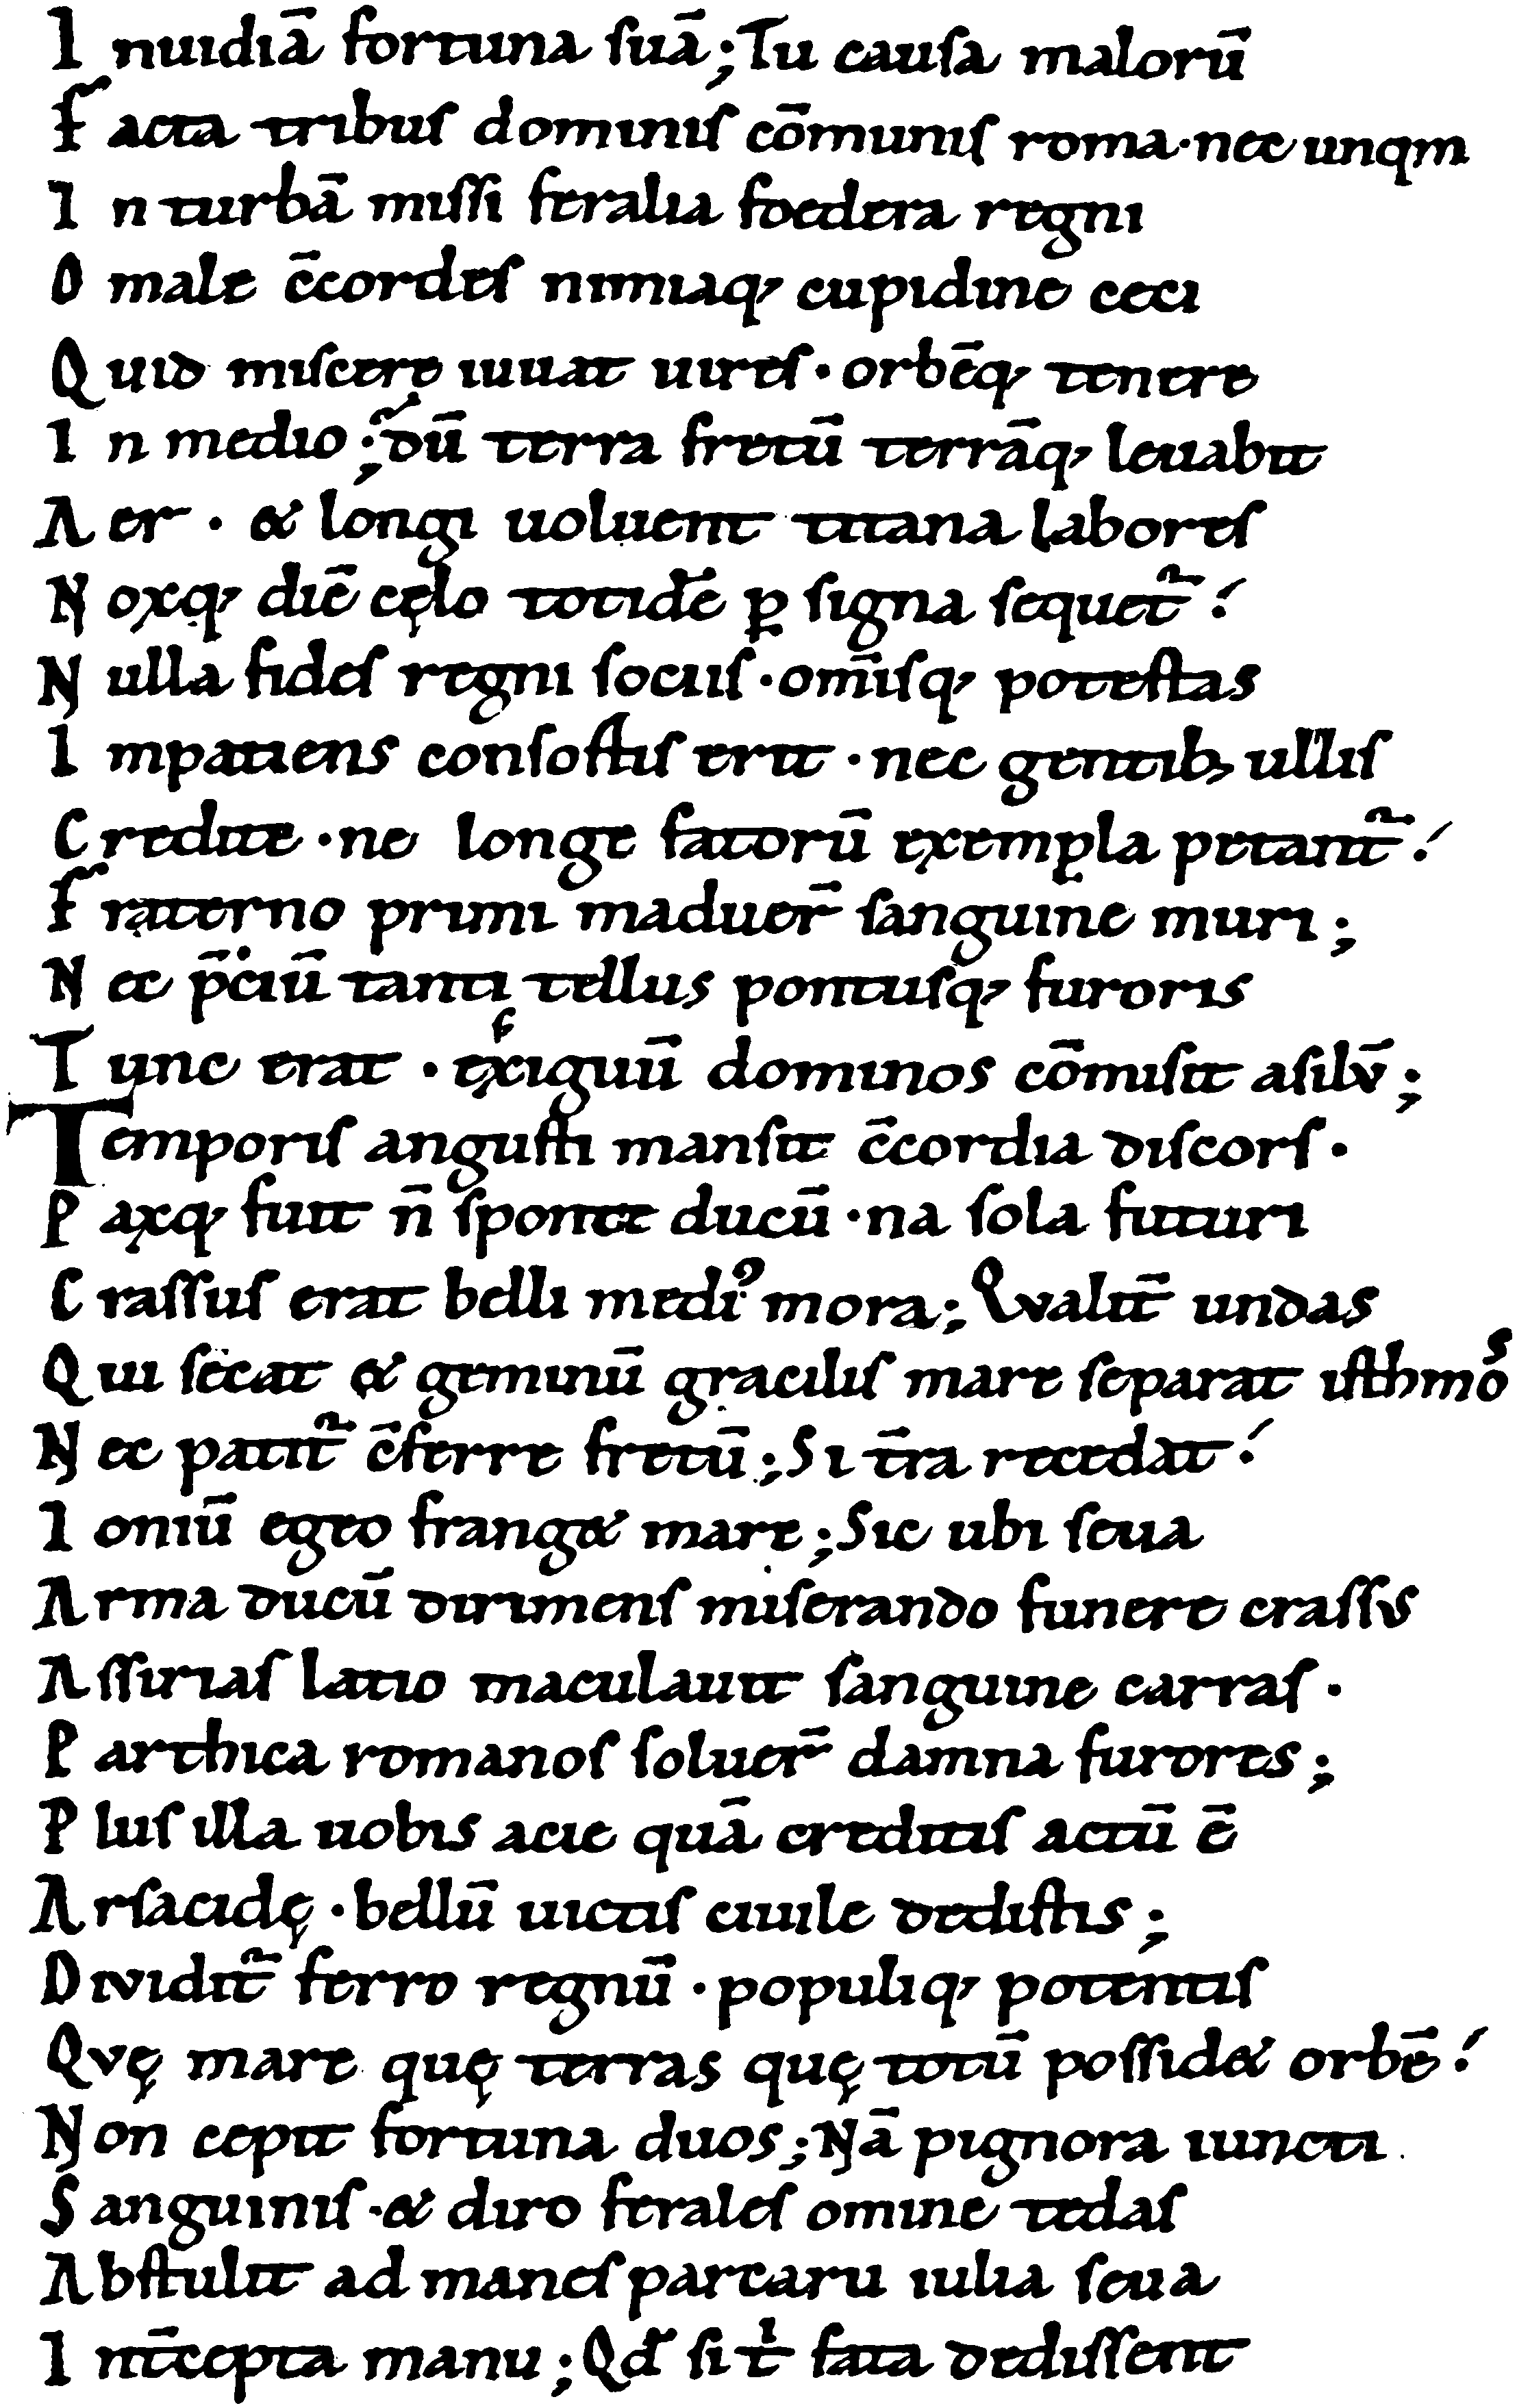 I nuidiā fortuna ſuā; Tu cauſa malorū
F acta tribuſ dominiſ cōmuniſ roma · nec unqm
I n turbā miſſi feralia foedera regni
O male c̄cordeſ nimiaq, cupidine ceci
Q uid miſcere iuuat uireſ · orbēq, tenere
I n medio ; dū terra fretū terrāq, leuabit
A er · & longi uoluent titana laboreſ
N oxq, diē cęlo totidē ꝑ ſigna ſequet᷑ ?
N ulla fideſ regni ſociiſ · om̄iſq, poteſtas
I mpatiens conſortiſ erit · nec gentib, ulliſ
C redite · ne longe fatorū exempla petant᷑ ?
F raterno primi maduer̄ ſanguine muri ;
N ec p̄ciū tanti tellus pontuſq, furoris
T unc erat · exiguū dominos cōmiſit aſilv̄ ;
Temporiſ anguſti manſit c̄cordia diſcorſ ·
P axq, fuit n̄ ſponte ducū · na ſola futuri
C raſſuſ erat belli mediꝰ mora ; Qvalit̄ undas
Q ui ſecat & geminū graciliſ mare ſeparat iſthmos
N ec patit᷑ c̄ferre fretū ; Si t̄ra recedat ?
I oniū egeo frang& mare ; Sic ubi ſeua
A rma ducū dirimenſ miſerando funere craſſvs
A ſſiriaſ latio maculauit ſanguine carraſ ·
P arthica romanoſ ſoluer̄ damna furores ;
P luſ illa uobis acie quā creditiſ actū ē
A rſacidę · bellū uictiſ ciuile dediſtis ;
D ividit᷑ ferro regnū · populiq, potentiſ
Q vę mare quę terras quę totū poſſid& orbē ?
N on cepit fortuna duos ; Nā pignora iuncti
S anguiniſ · & diro feraleſ omine tedaſ
A bſtulit ad maneſ parcaru iulia ſeua
I nt̄cepta manu ; Qd̄ ſi tͥ fata dediſſent